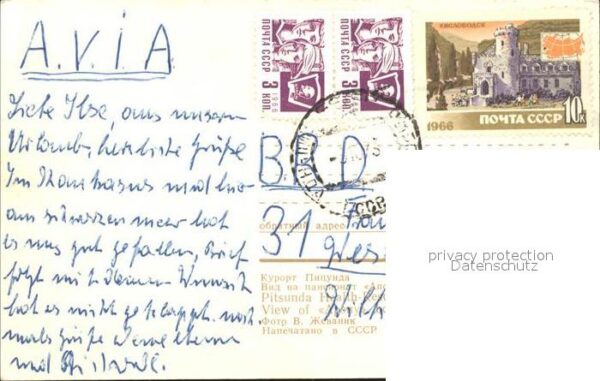 A.V.i.A.
Liebe Ilse, aus unserem
Urlaub, herzliche Grüße
Im Kaukasus und hier
am schwarzen Meer hat
es uns gut gefallen, Brief
folgt mit Deinem Wunsch
hat es nicht geklappt. noch
mals Grüße Deine Eltern
und
ПОЧТА СССР
3 КОП
1966
ПОЧТА СССР
3 КОП
1966
КИСЛОВОДСК
1966 ПОЧТА СССР 10К
СССР
B.R.D
31
обратный адрес
Курорт Пицунда
Вид на пансионат
Pitsunda Health-Res
View of
Фото В. Жеваник
Напечатано в СССР
privacy protection
Datenschutz